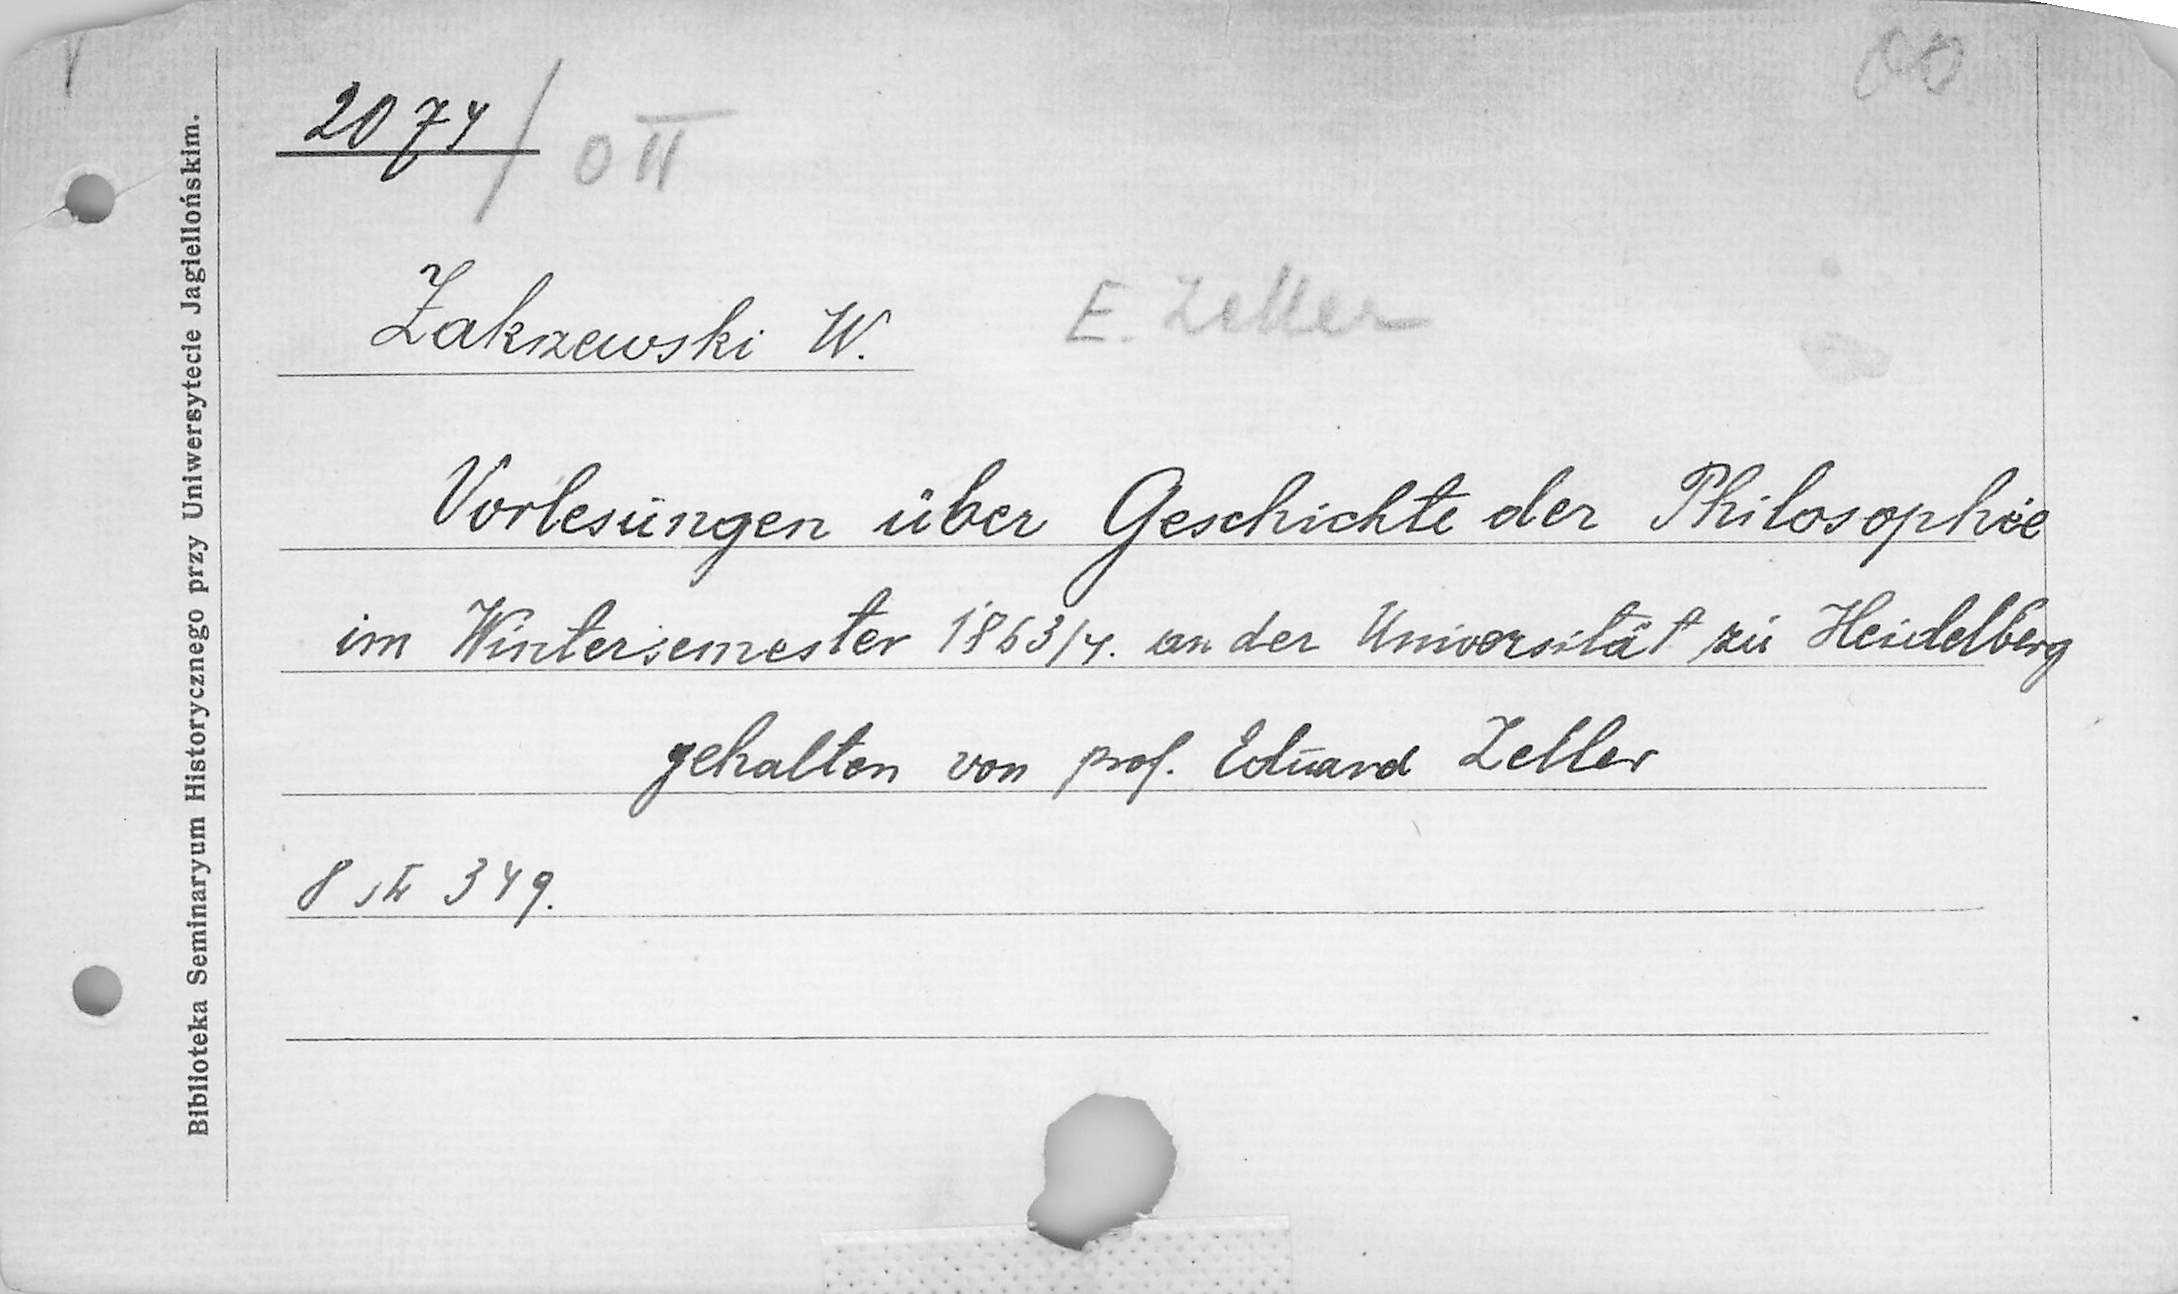 2074 / O II
00
Zakrzewski W. E. Zeller
Vorlesungen über Geschichte der Philosophie
im Wintersemester 1863/4. an der Universität zu Heidelberg
gehalten von prof. Eduard Zeller
8 str 349.
Biblioteka Seminaryum Historycznego przy Uniwersytecie Jagiellońskim.